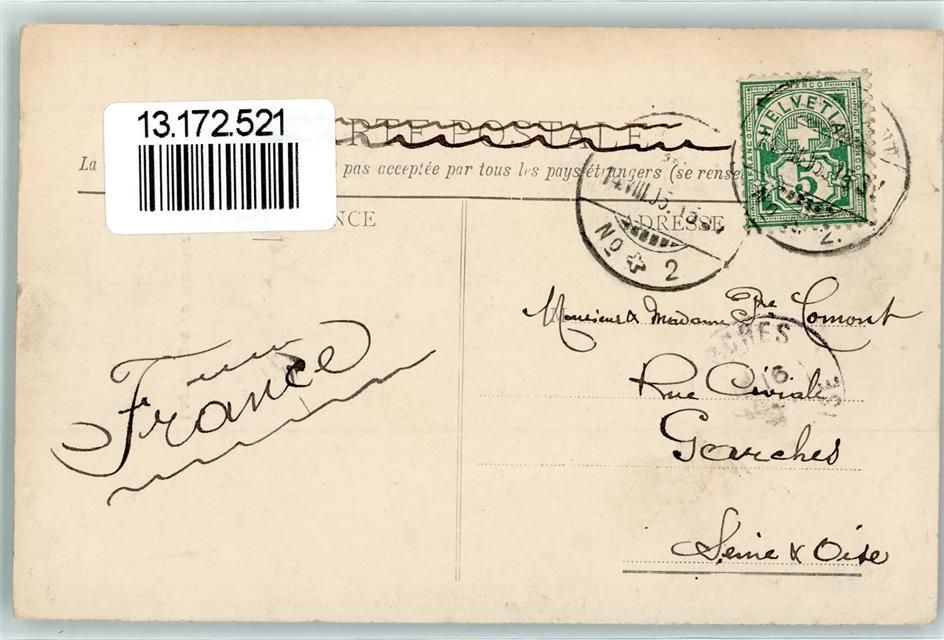 13.172.521
CARTE POSTALE
La pas acceptée par tous les pays étrangers (se rense
NCE
ADRESSE
HELVETIA
FRANCO
5
14.VIII.05.
No 2
2.
Monsieur & Madame Pre Comont
GARCHES
16
Rue Civiale
Garches
Seine & Oise
France